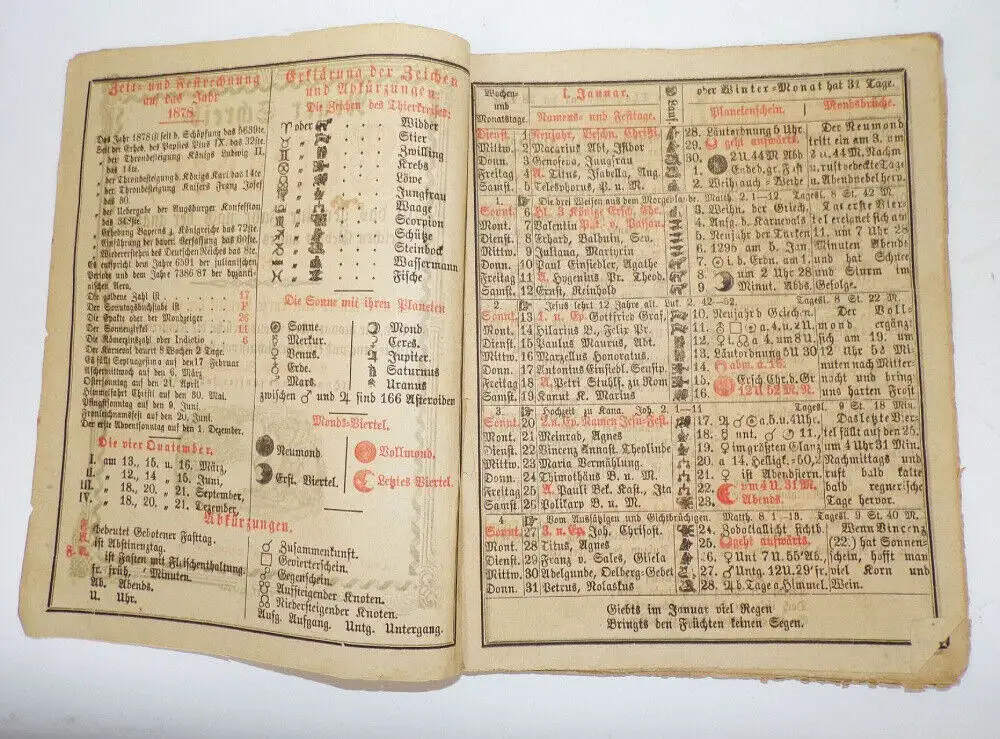 Zeit- und Festrechnung
auf das Jahr
1878.
Das Jahr 1878 ist seit d. Schöpfung das 5639te.
Seit der Erheb. des Papstes Pius IX. das 32ste.
„ der Thronbesteigung Königs Ludwig II.
das 14te.
„ der Thronbesteigung d. Königs Karl das 14te
„ der Thronbesteigung Kaisers Franz Josef
das 30.
„ der Uebergabe der Augsburger Konfession
das 348ste
„ Erhebung Bayerns z. Königreiche das 72ste.
„ Einführung der bayer. Verfassung das 60ste.
„ Wiedererstehen des Deutschen Reiches das 8te.
Es entspricht dem Jahre 6591 der julianischen
Periode und dem Jahre 7386/87 der byzanti-
nischen Aera.
Die goldene Zahl ist . . . . . 17
Der Sonntagsbuchstabe ist . . . F
Die Epakte oder der Mondzeiger . 26
Der Sonnenzirkel . . . . . 11
Die Römerzinszahl oder Indictio . . 6
Der Karneval dauert 8 Wochen 2 Tage.
Es fällt Septuagesima auf den 17 Februar
Aschermittwoch auf den 6. März,
Ostersonntag auf den 21. April,
Himmelfahrt Christi auf den 30. Mai.
Pfingstsonntag auf den 9. Juni,
Frohnleichnamsfest auf den 20. Juni.
Der erste Adventsonntag auf den 1. Dezember.
Die vier Quatember.
I. am 13., 15. u. 16. März,
II. „ 12., 14. „ 15. Juni,
III. „ 18., 20. „ 21. September,
IV. „ 18., 20. „ 21. Dezember.
Abkürzungen.
bedeutet Gebotener Fasttag.
A. ist Abstinenztag.
F. A. ist Fasten mit Fleischenthaltung.
fr. früh, ' Minuten.
Ab. Abends.
U. Uhr.
Erklärung der Zeichen
und Abkürzungen:
Die Zeichen des Thierkreises:
♈ oder . . . Widder
♉ „ . . . Stier
♊ „ . . . Zwilling
♋ „ . . . Krebs
♌ „ . . . Löwe
♍ „ . . . Jungfrau
♎ „ . . . Waage
♏ „ . . . Scorpion
♐ „ . . . Schütze
♑ „ . . . Steinbock
♒ „ . . . Wassermann
♓ „ . . . Fische
Die Sonne mit ihren Planeten
☉ Sonne. ☽ Mond
☿ Merkur. ⚳ Ceres.
♀ Venus. ♃ Jupiter.
♁ Erde. ♄ Saturnus
♂ Mars. ♅ Uranus
zwischen ♂ und ♃ sind 166 Asteroiden
Monds-Viertel.
Neumond. Vollmond.
Erst. Viertel. Letztes Viertel.
☌ Zusammenkunft.
□ Gevierterschein.
☍ Gegenschein.
☊ Aufsteigender Knoten.
☋ Niedersteigender Knoten.
Aufg. Aufgang. Untg. Untergang.
Wochen- und Monatstage.
I. Januar.
Namens- und Festtage.
Lauf
oder Winter-Monat hat 31 Tage.
Planetenschein. Mondsbrüche.
Dienst. 1 Neujahr, Beschn. Christi. 28. Läutordnung 5 Uhr Der Neumond
Mittw. 2 Macarius Abt, Isidor 29. geht aufwärts. tritt ein am 3.
Donn. 3 Genofeva, Jungfrau 30. 2 U. 44 M Ab 2 u. 44 M. Nachm
Freitag 4 A. Titus, Isabella, Ang. 1. Ended. gr. Fist u. rust bedeckte Tage
Samst. 5 Telesphorus, P. u. M. 2. Weihrauch-Weihe u. Abendnebel herv.
1. Die drei Weisen aus dem Morgenlande. Matth. 2. 1—12. Tagesl. 8 St. 42 M.
Sonnt. 6 Hl. 3 Könige Ersch. Chr. 3. Weihn. der Griech. Das erste Vier-
Mont. 7 Valentin Pat. v. Passau. 4. Anf. d. Karnevals tel ereignet sich am
Dienst. 8 Erhard, Balduin, Sev. 5. Neujahr der Türken 11. um 7 Uhr 28
Mittw. 9 Juliana, Martyrin 6. 1295 am 5. Jan. Minuten Abends
Donn. 10 Paul Einsiedler, Agathe 7. ☉ i. d. Erdn. am 1. und hat Schnee
Freitag 11 A. Hyginus Pr. Theod. 8. um 2 Uhr 28 und Sturm im
Samst. 12 Ernst, Reinhold 9. Minut. Abbs. Gefolge.
2. Jesus lehrt 12 Jahre alt. Luk. 2. 42—52. Tagesl. 8 St. 22 M.
Sonnt. 13 1. n. Ep. Gottfried Graf, 10. Neujahr d Griechen. Der Voll-
Mont. 14 Hilarius B., Felix Pr. 11. mond ergänzt
Dienst. 15 Paulus Maurus, Abt. 12. sich am 19. um
Mittw. 16 Marzellus Honoratus. 13. Läutordnung 5 U 30 12 Uhr 53 Mi-
Donn. 17 Antonius Einsiedl. Seusip. 14. abw. a. 16. nuten Mitternacht-
Freitag 18 A. Petri Stuhlf. zu Rom 15. Ersch Chr. b. Gr nacht und bring-
Samst. 19 Kanut K. Marius 16. 12 U 52 M. N. uns harten Frost
3. Hochzeit zu Kana. Joh. 2. 1—11. Tagesl. 9 St. 18 Min.
Sonnt. 20 2. n. Ep. Namen Jesu-Fest. 17. a. 5 u. 4 Uhr. Das letzte Vier-
Mont. 21 Meinrad, Agnes 18. unt. tel fällt auf den 25.
Dienst. 22 Vincenz Annast. Theolinde 19. im größten Glanz um 4 Uhr 31 Min
Mittw. 23 Maria Vermählung. 20. a 14. Helligk. =50,2 Nachmittags und
Donn. 24 Thimothäus B. u. M. 21. ist Abendstern. rust bald kalte
Freitag 25 A. Pauli Bek. Kast., Ita 22. um 4 U. 31 M. bald regnerische
Samst. 26 Polikarp B. u. M. 23. Abends. Tage hervor.
4. Vom Aussätzigen und Gichtbrüchigen. Matth. 8 1—13. Tagesl. 9 St. 40 M.
Sonnt. 27 3. n. Ep. Joh. Chrisost. 24. Zodiakallicht sichtb. Wenn Vincenz
Mont. 28 Titus, Agnes 25. geht aufwärts. (22.) hat Sonnen-
Dienst. 29 Franz v. Sales, Gisela 26. Unt 7 U. 55' Ab. schein, hofft man
Mittw. 30 Adelgunde, Oelberg-Gebet 27. Untg. 12 U. 29' fr. viel Korn und
Donn. 31 Petrus, Nolaskus 28. b. Tag a. Himmel. Wein.
Giebts im Januar viel Regen
Bringts den Früchten keinen Segen.